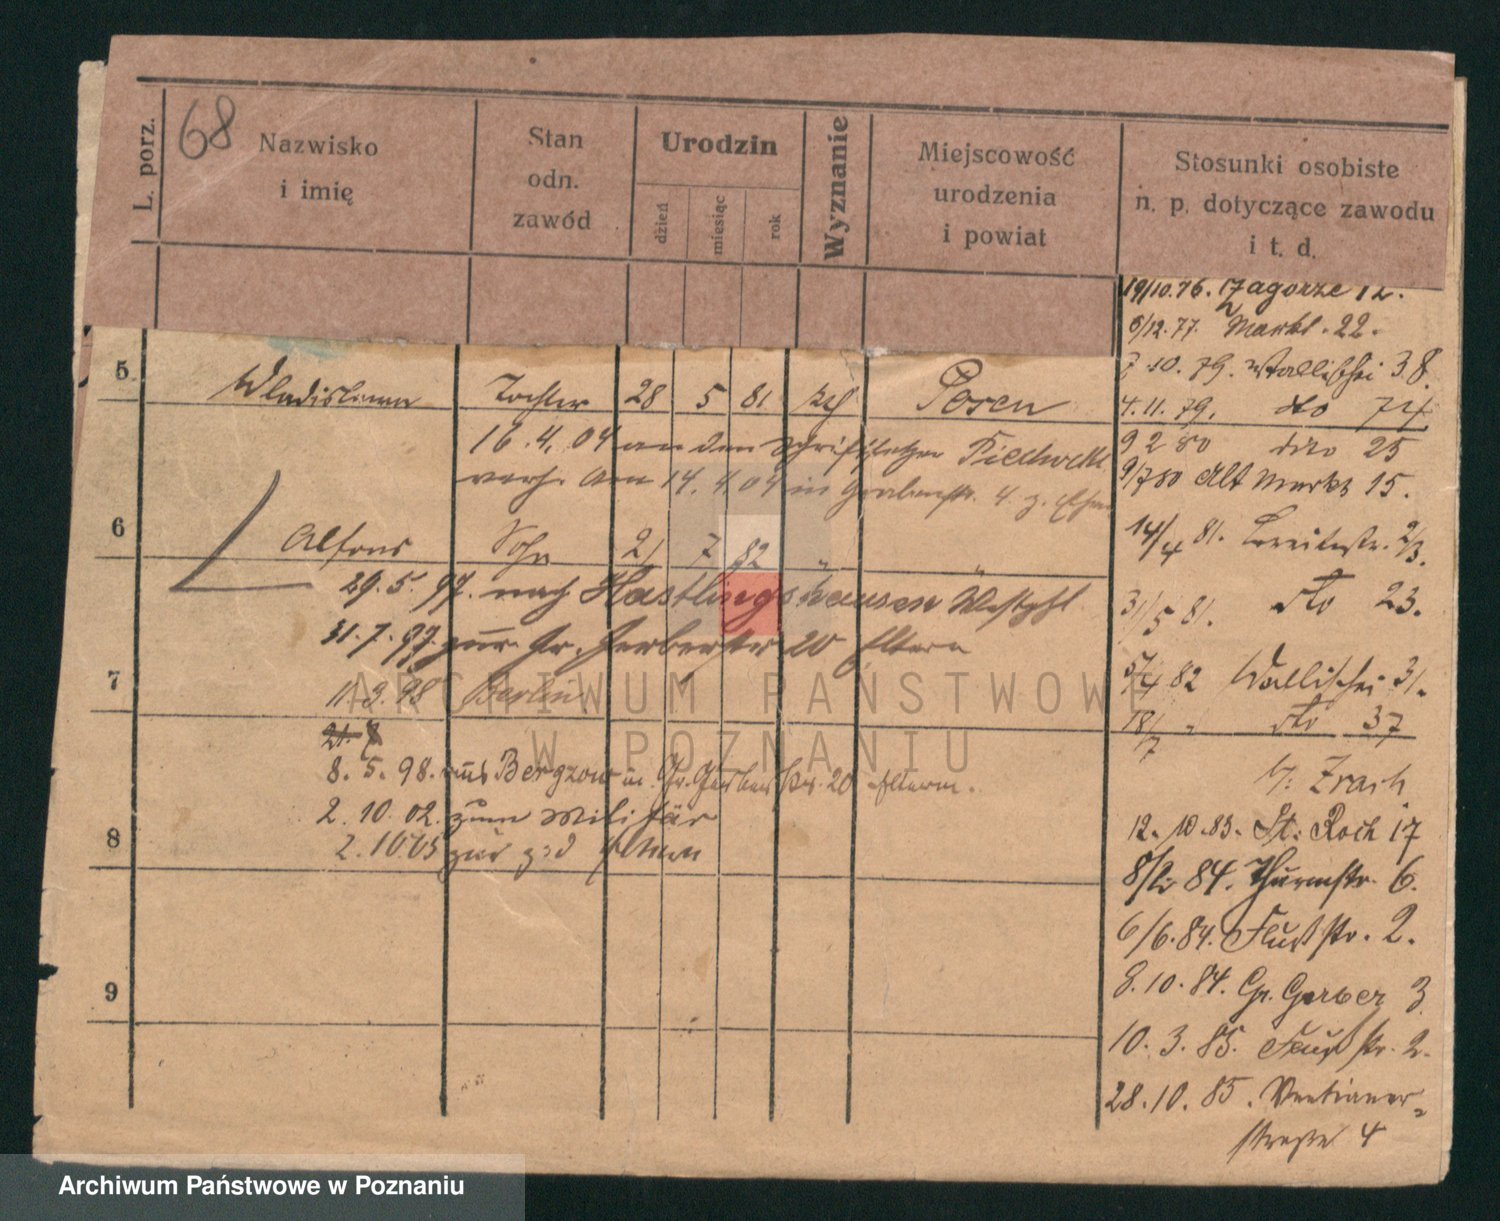 68
L. porz.
Nazwisko i imię
Stan odn. zawód
Urodzin
dzień
miesiąc
rok
Wyznanie
Miejscowość urodzenia i powiat
Stosunki osobiste n. p. dotyczące zawodu i t. d.
19/10.76. Zagorze 12.
6/12.77. Markt. 22.
7 10. 79. Wallischei 38.
5 Wladislawa Tochter 28 5 81 kth Posen
4. 11. 79. dto 74
16. 4. 04 an den Schriftsetzer
9 2 80 dito 25
verh. Am 14. 4. 04 in Grabenstr. 4
9/7 80 Alt Markt 15.
6 Alfons Sohn 21 7 82 "
14/4 81. Breitestr. 2/3.
29. 5. 97. nach Hastlingshausen Westphl
31/5 81. dto 23.
31. 7. 97. zur. Gr. Gerberstr 20 Eltern
7
11. 3. 98 Berlin
5/4 82 Wallischei 31.
18/7 " dto 37
8. 5. 98. aus Bergzow in Gr. Gerberstr. 20 Eltern.
b/: Zrash
2. 10. 02. zum Militär
12. 10. 83. St. Roch 17
8
2. 10 05 zur Eltern
84. Thurmstr. 6.
6/6. 84. Flussstr. 2.
9
8. 10. 84. Gr. Gerber 3
10. 3. 85. Flussstr. 2.
28. 10. 85. Venetianer-
strasse 4
ARCHIWUM PAŃSTWOWE
W POZNANIU
Archiwum Państwowe w Poznaniu